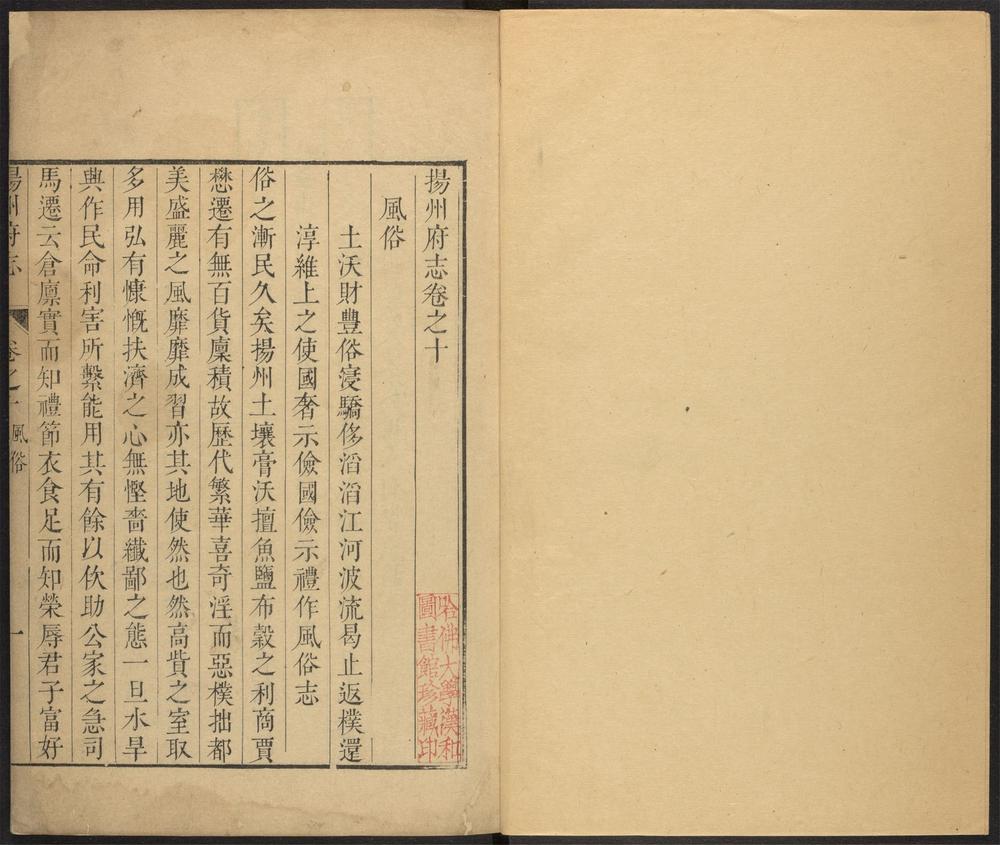 揚州府志卷之十
風俗
土沃財豐俗寖驕侈滔滔江河波流曷止返樸還
淳維上之使國奢示儉國儉示禮作風俗志
俗之漸民久矣揚州土壤膏沃擅魚鹽布穀之利商賈
懋遷有無百貨廩積故歷代繁華喜奇淫而惡樸拙都
美盛麗之風靡靡成習亦其地使然也然高貲之室取
多用弘有慷慨扶濟之心無慳嗇纖鄙之態一旦水旱
興作民命利害所繫能用其有餘以佽助公家之急司
馬遷云倉廩實而知禮節衣食足而知榮辱君子富好
揚州府志 卷之十 風俗 一
哈佛大學漢和
圖書館珍藏印